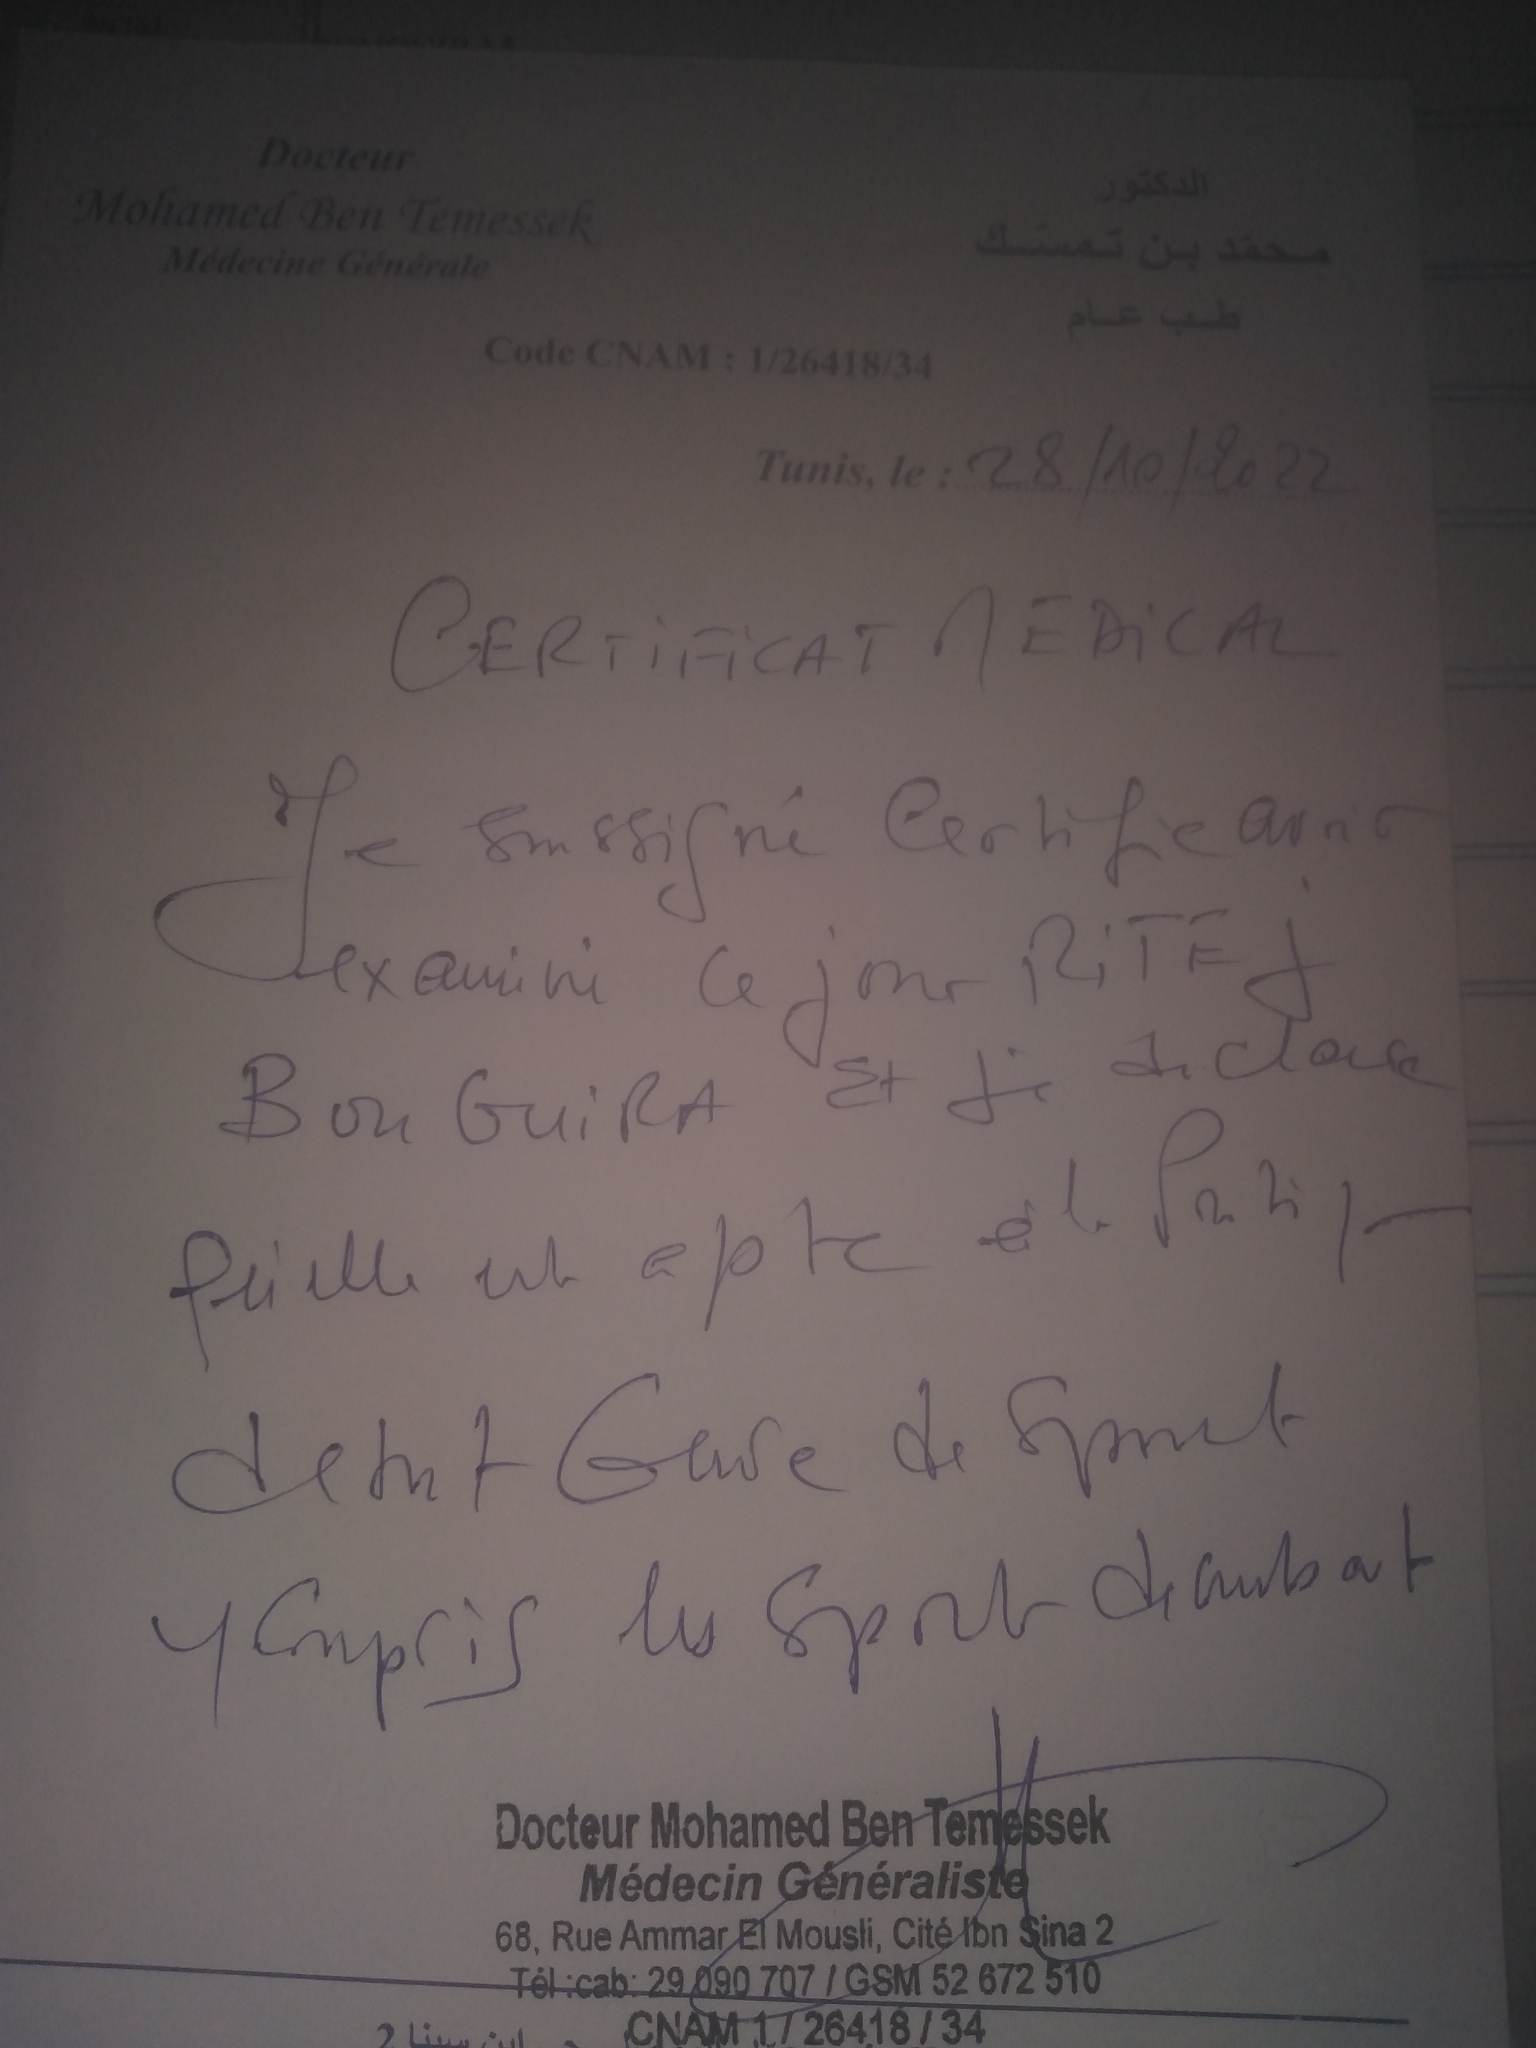 Docteur
Mohamed Ben Temessek
Médecine Générale
الدكتور
محمد بن تمسك
طب عام
Code CNAM : 1/26418/34
Tunis, le : 28/10/2022
CERTIFICAT MEDICAL
Je soussigné Certifie avoir
examiné ce jour RITEJ
BOUGUIRA et je declare
qu'elle est apte à la Pratiq
de tout Genre de Sport
y Compris les Sports de combat
Docteur Mohamed Ben Temessek
Médecin Généraliste
68, Rue Ammar El Mousli, Cité Ibn Sina 2
Tél :cab: 29 090 707 / GSM 52 672 510
CNAM 1 / 26418 / 34
ابن سينا 2